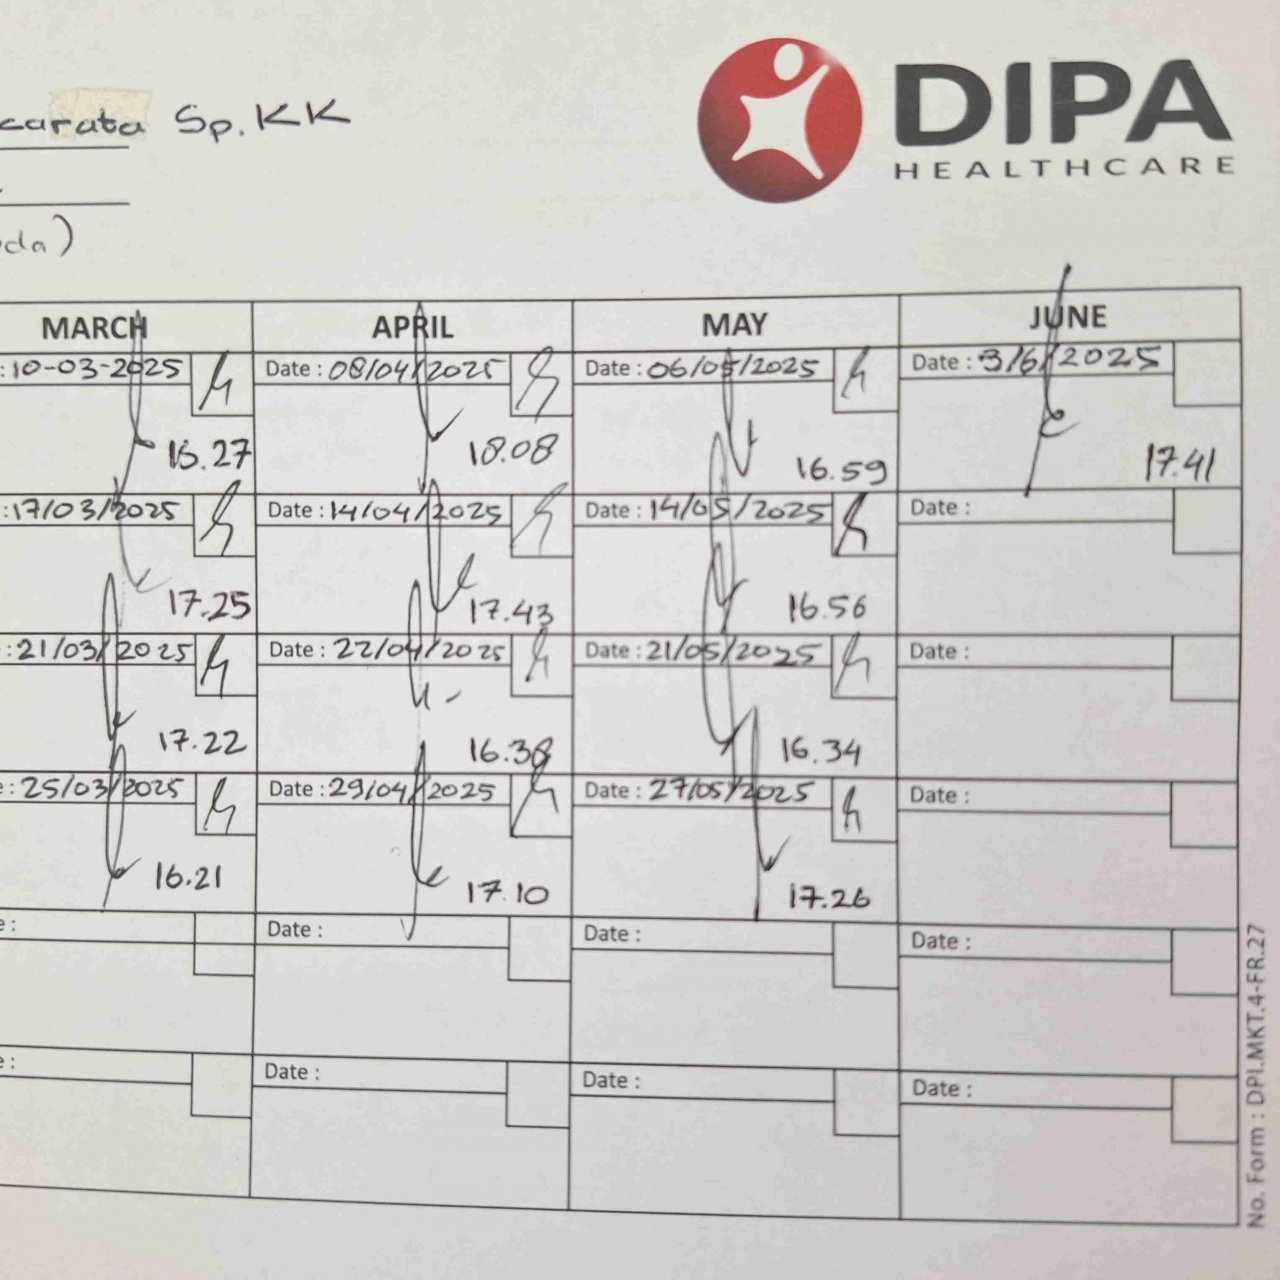 DIPA
HEALTHCARE
carata Sp.KK
oda)
MARCH APRIL MAY JUNE
: 10-03-2025 Date : 08/04/2025 Date : 06/05/2025 Date : 3/6/2025
16.27 18.08 16.59 17.41
: 17/03/2025 Date : 14/04/2025 Date : 14/05/2025 Date :
17.25 17.43 16.56
: 21/03/2025 Date : 22/04/2025 Date : 21/05/2025 Date :
17.22 16.38 16.34
e : 25/03/2025 Date : 29/04/2025 Date : 27/05/2025 Date :
16.21 17.10 17.26
e : Date : Date : Date :
e : Date : Date : Date :
No. Form : DPI.MKT.4-FR.27